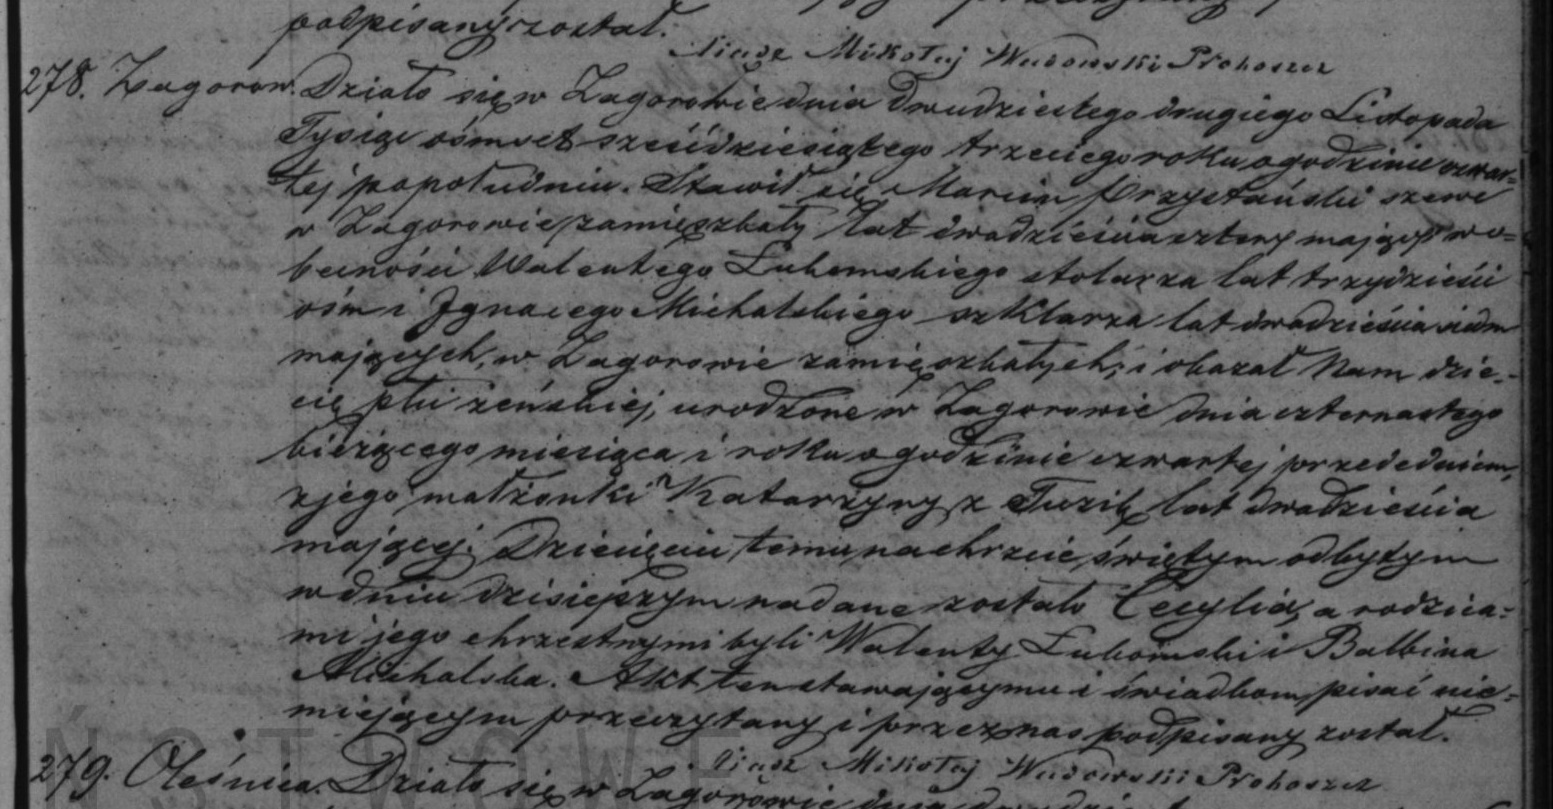 podpisany został.
Xiądz Mikołaj Wadowski Proboszcz
278. Zagorow. Działo się w Zagorowie dnia dwudziestego drugiego Listopada
Tysiąc ośmset sześćdziesiątego trzeciego roku o godzinie czwar=
tej popołudniu. Stawił się Marcin Przystański szewc
w Zagorowie zamięszkały lat dwadzieścia cztery mający w o=
becności Walentego Lubomskiego stolarza lat trzydzieści
ośm i Jgnacego Michalskiego szklarza lat dwadzieścia siedm
mających, w Zagorowie zamięszkałych; i okazał Nam dzie=
cię płci żeńskiej, urodzone w Zagorowie dnia czternastego
bieżącego miesiąca i roku o godzinie czwartej przededniem,
z jego małżonki Katarzyny z lat dwadzieścia
mającej. Dziecięciu temu na chrzcie świętym odbytym
w dniu dzisiejszym nadane zostało Cecylia, a rodzica=
mi jego chrzestnymi byli Walenty Lubomski i Balbina
Michalska. Akt ten stawającymu i świadkom pisać nie=
miejącym przeczytany i przez nas podpisany został.
Xiądz Mikołaj Wadowski Proboszcz
279. Oleśnica. Działo się w Zagorowie dnia
ŃSTWOWE